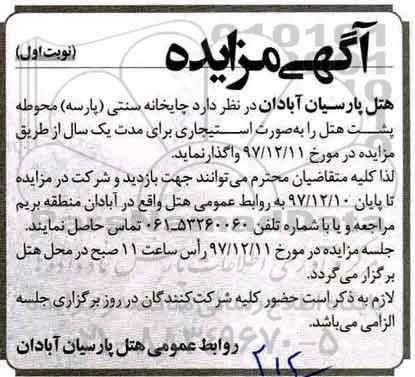 آگهی مزایده
(نوبت اول)
هتل پارسیان آبادان در نظر دارد چایخانه سنتی (پارسه) محوطه
پشت هتل را به‌صورت استیجاری برای مدت یک سال از طریق
مزایده در مورخ ۹۷/۱۲/۱۱ واگذار نماید.
لذا کلیه متقاضیان محترم می‌توانند جهت بازدید و شرکت در مزایده
تا پایان ۹۷/۱۲/۱۰ به روابط عمومی هتل واقع در آبادان منطقه بریم
مراجعه و یا با شماره تلفن ۵۳۲۶۰۰۶۰-۰۶۱ تماس حاصل نمایند.
جلسه مزایده در مورخ ۹۷/۱۲/۱۱ رأس ساعت ۱۱ صبح در محل هتل
برگزار می‌گردد.
لازم به ذکر است حضور کلیه شرکت‌کنندگان در روز برگزاری جلسه
الزامی می‌باشد.
۰۲۱-۸۸۳۴۹۶۷۰-۵
روابط عمومی هتل پارسیان آبادان